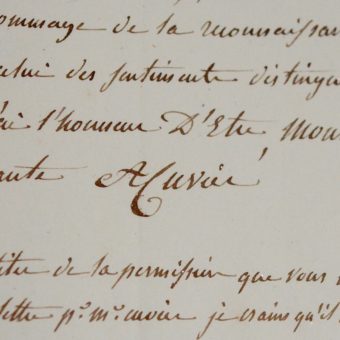 ommage de la reconnaissan
celui des sentiments distingu
ai l'honneur D'Etre, Mon
ante ACuvier
titre de la permission que vous
lettre pr. mr. cuvier je crains qu'il